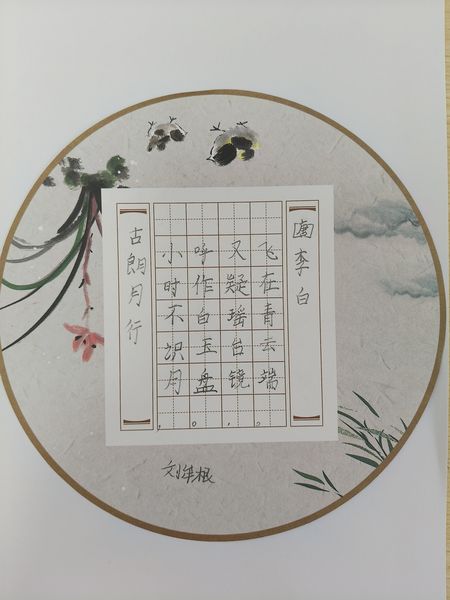 古朗月行
小时不识月，
呼作白玉盘。
又疑瑶台镜，
飞在青云端。
李白